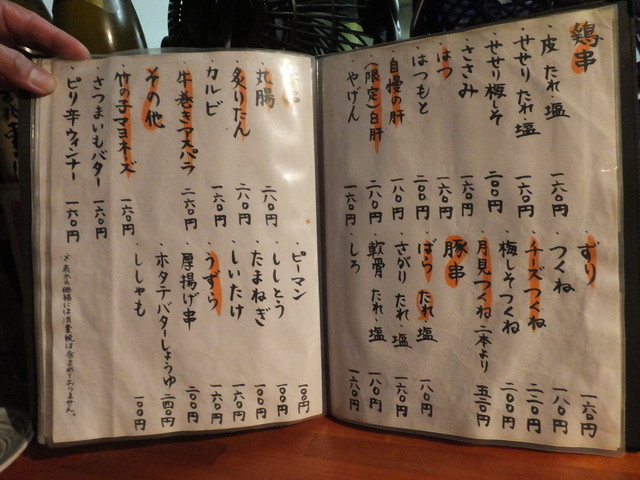 鶏串
・皮 たれ・塩 一六〇円
・せせり たれ・塩 一六〇円
・せせり梅しそ 二〇〇円
・ささみ 一六〇円
・はつ 一六〇円
・はつもと 二〇〇円
・自慢の肝 一八〇円
・(限定)白肝 二八〇円
・やげん 一六〇円
・ずり 一六〇円
・つくね 一八〇円
・チーズつくね 二二〇円
・梅しそつくね 二〇〇円
・月見つくね 二本より 五二〇円
豚串
・ばら たれ・塩 一八〇円
・さがり たれ・塩 一六〇円
・軟骨 たれ・塩 一八〇円
・しろ 一六〇円
・丸腸 二八〇円
・炙りたん 二八〇円
・カルビ 一六〇円
・牛巻きアスパラ 二六〇円
その他
・竹の子マヨネーズ 一六〇円
・さつまいもバター 一六〇円
・ピリ辛ウィンナー 一六〇円
・ピーマン 一〇〇円
・ししとう 一〇〇円
・たまねぎ 一〇〇円
・しいたけ 一六〇円
・うずら 一六〇円
・厚揚げ串 二〇〇円
・ホタテバターしょうゆ 二四〇円
・ししゃも 一〇〇円
※表示価格には消費税は含まれておりません。